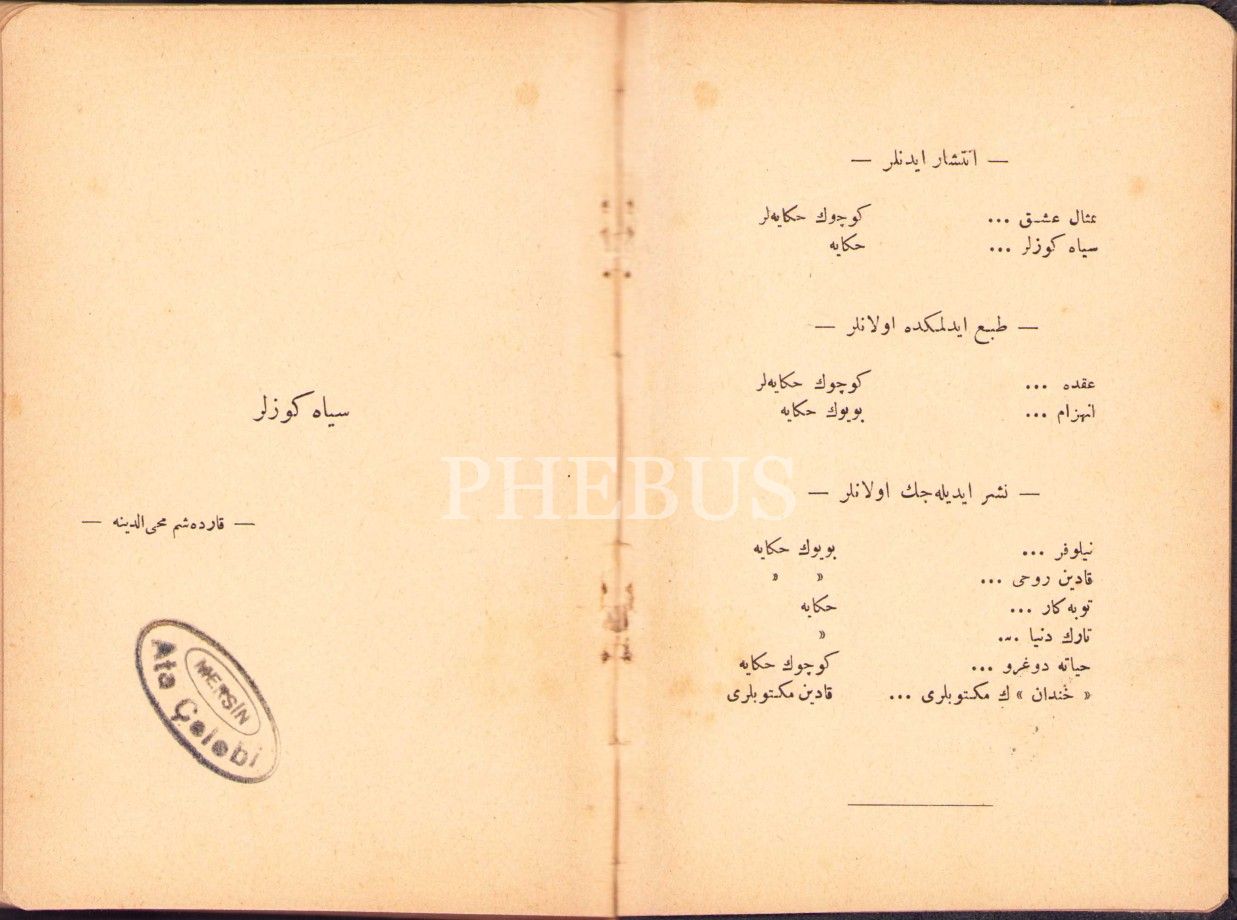 — انتشار ایدنلر —
تمثال عشق ... كوچوك حكایه‌لر
سیاه كوزلر ... حكایه
— طبع ایدلمكده اولانلر —
عقده ... كوچوك حكایه‌لر
انهزام ... بویوك حكایه
— نشر ایدیله‌جك اولانلر —
نیلوفر ... بویوك حكایه
قادین روحی ... » »
توبه‌كار ... حكایه
تارك دنیا ... »
حیاته دوغرو ... كوچوك حكایه
« خندان » ك مكتوبلری ... قادین مكتوبلری
سیاه كوزلر
— قارده‌شم محی‌الدینه —
MERSİN
Ata Çelebi
PHEBUS